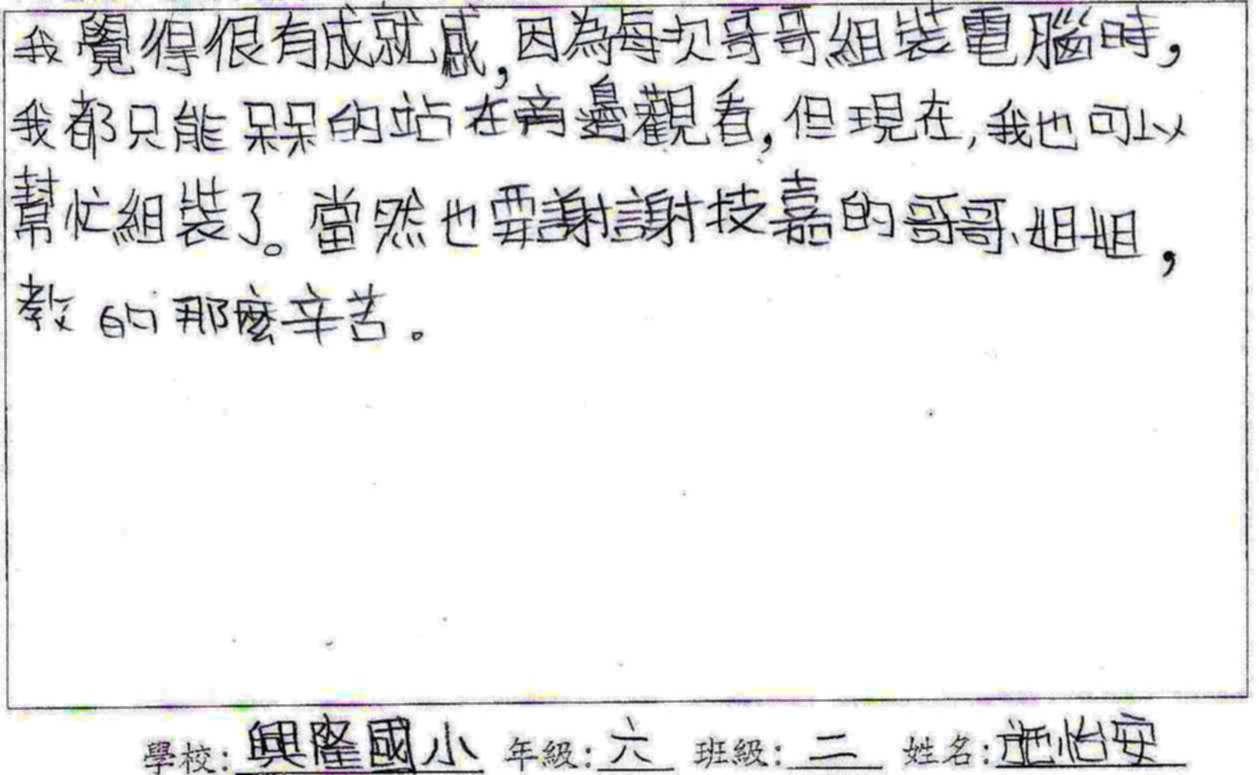 我覺得很有成就感,因為每次哥哥組裝電腦時,
我都只能呆呆的站在旁邊觀看,但現在,我也可以
幫忙組裝了。當然也要謝謝技嘉的哥哥、姐姐,
教的那麼辛苦。
學校:興隆國小 年級:六 班級:二 姓名:施怡安